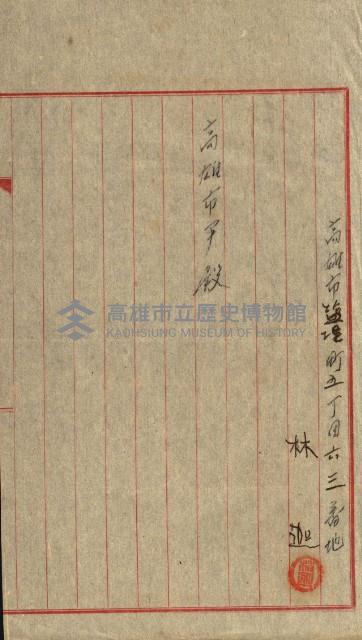 高雄市塩埕町五丁目六三番地
林
高雄市尹殿
高雄市立歷史博物館
KAOHSIUNG MUSEUM OF HISTORY